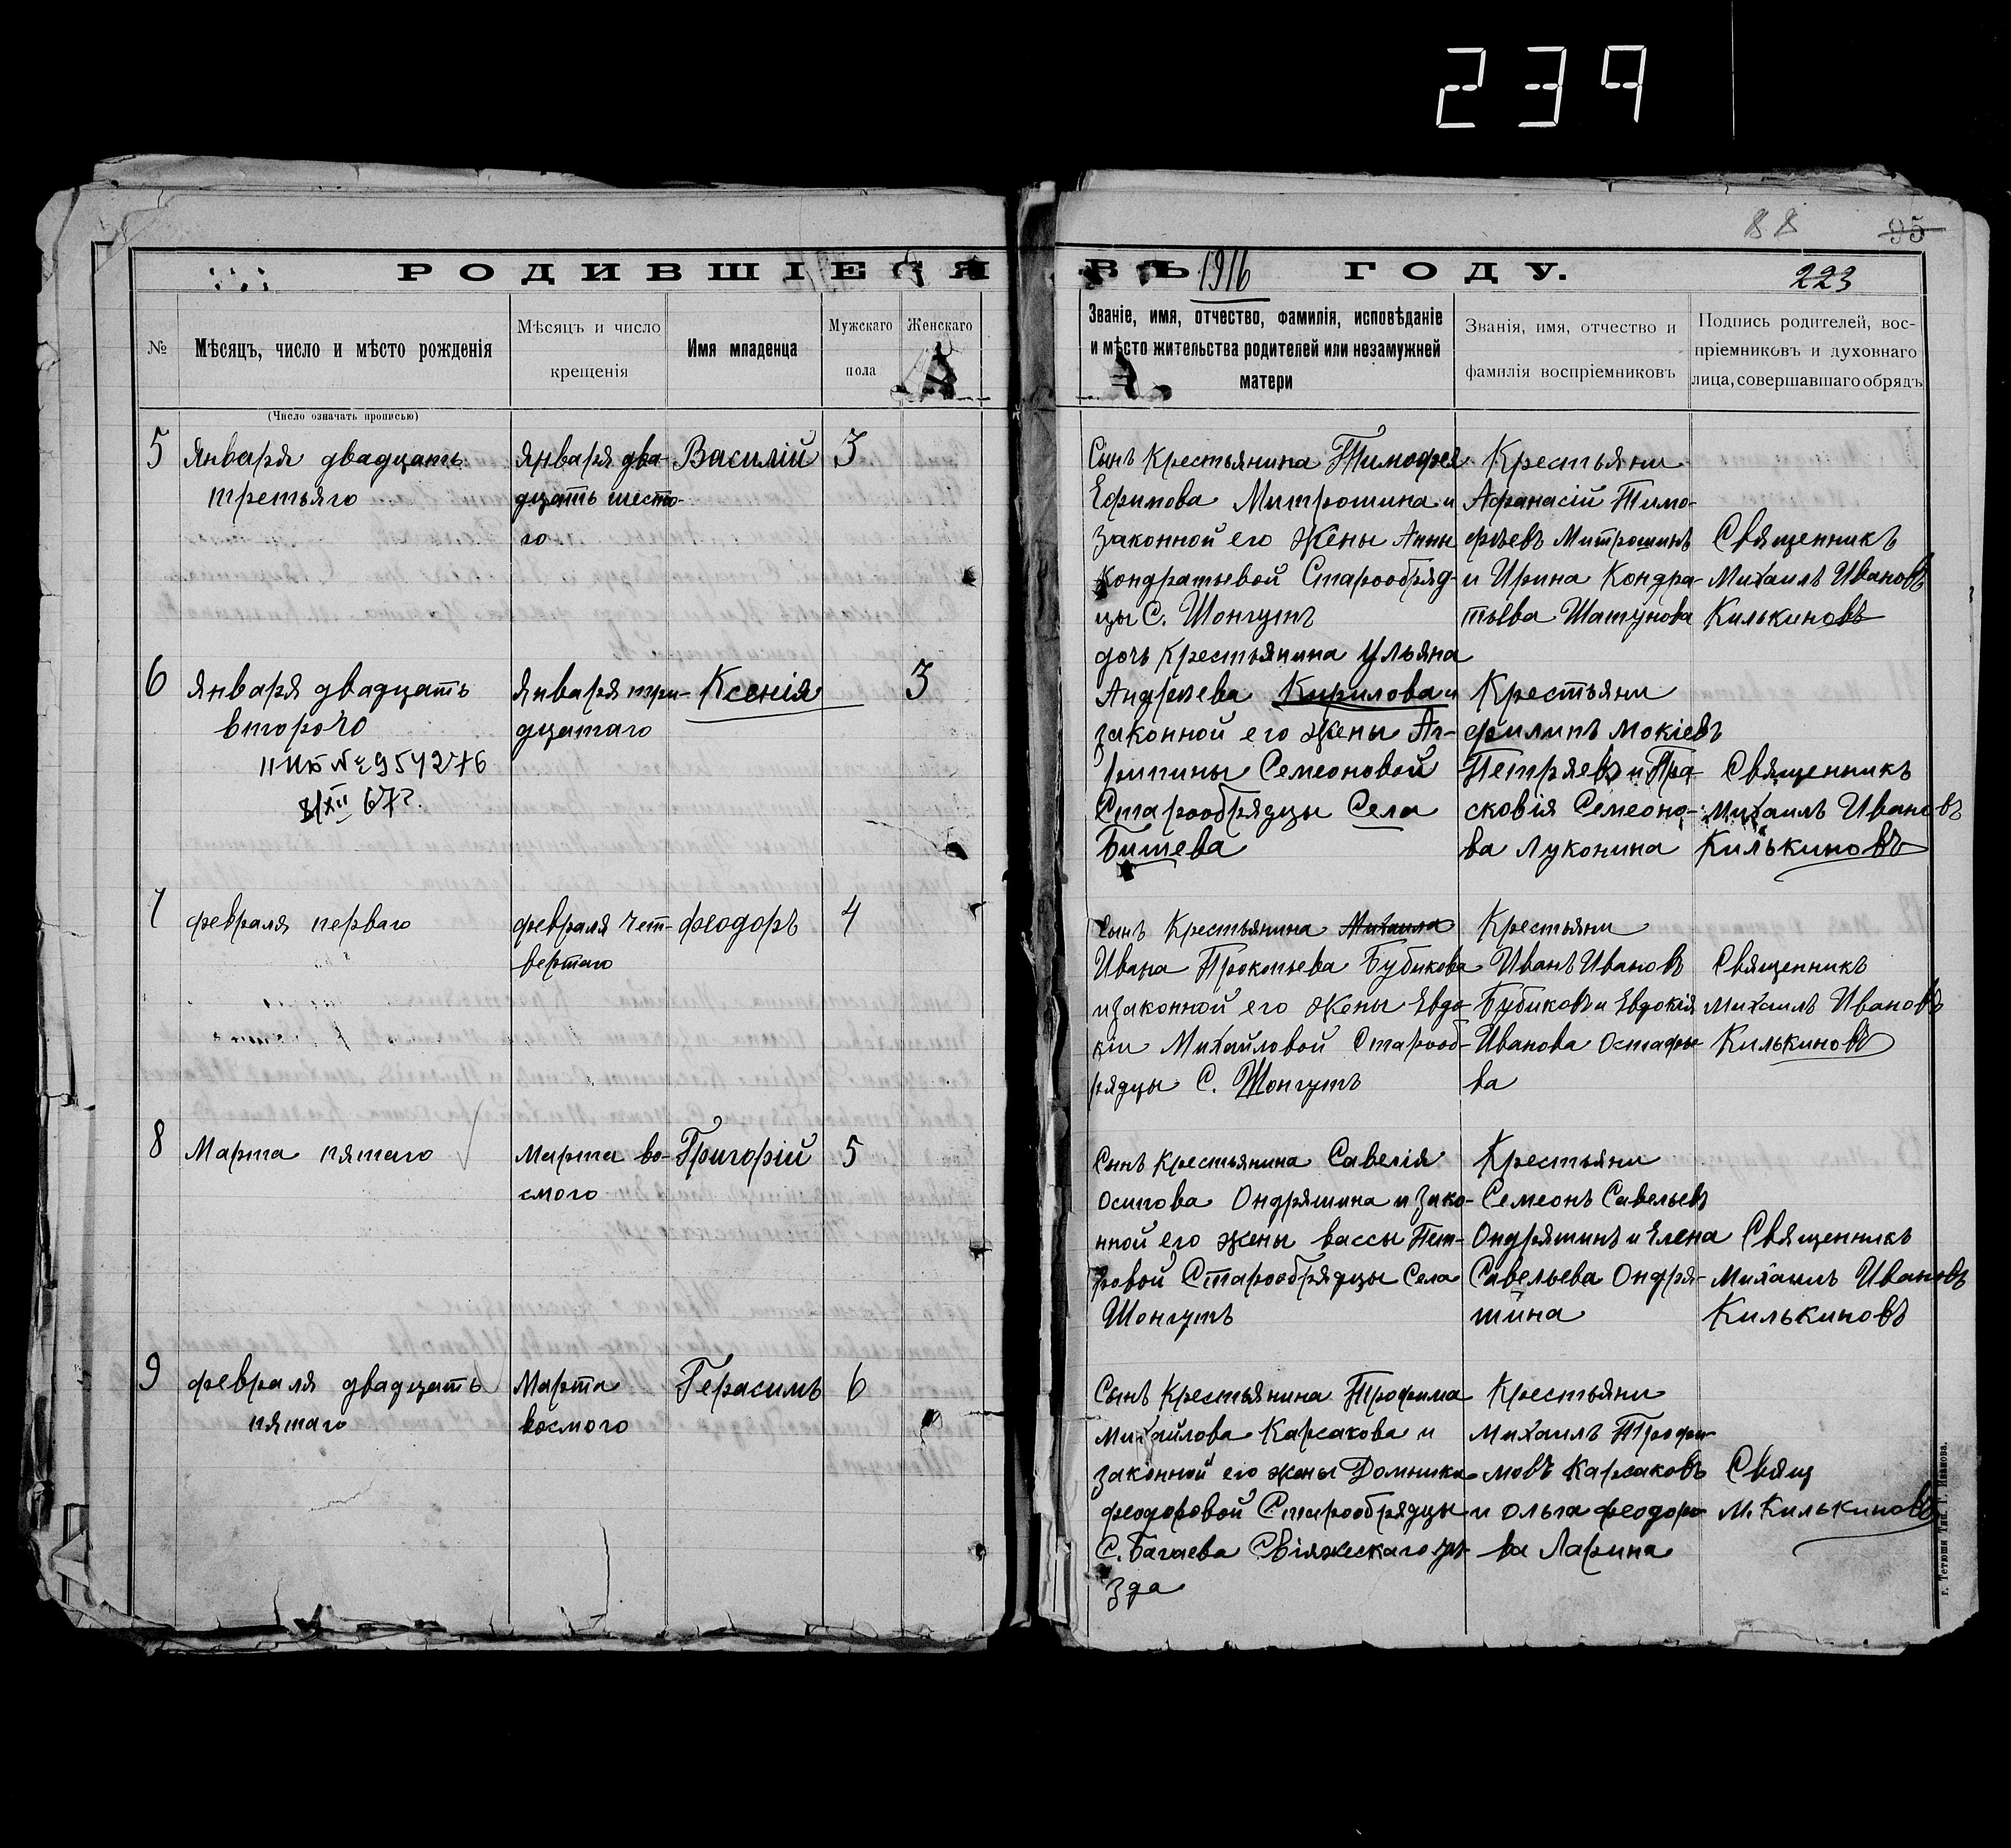 239
88 95
РОДИВШІЕСЯ ВЪ 1916 ГОДУ.
223
№
Мѣсяцъ, число и мѣсто рожденія
Мѣсяцъ и число
крещенія
Имя младенца
Мужскаго
пола
Женскаго
Званіе, имя, отчество, фамилія, исповѣданіе
и мѣсто жительства родителей или незамужней
матери
Званія, имя, отчество и
фамилія воспріемниковъ
Подпись родителей, вос-
пріемниковъ и духовнаго
лица, совершавшаго обрядъ
(Число означать прописью)
5
Января двадцать
третьяго
Января два-
дцать шесто-
го
Василій
3
Сынъ Крестьянина Тимофея
Ефимова Митрошина и
законной его жены Анны
Кондратьевой Старообряд-
цы С. Шонгутъ
Крестьяни
Афанасій Тимо-
фѣевъ Митрошинъ
и Ирина Кондра-
тьева Шатунова
Священникъ
Михаилъ Ивановъ
Килькиновъ
6
Января двадцать
второго
II ИБ № 954276
8/XII 67г.
Января три-
дцатаго
Ксенія
3
дочь Крестьянина Ульяна
Андреева Кирилова и
законной его жены Аг-
рипины Семеоновой
Старообрядцы Села
Бишева
Крестьяни
Филипъ Мокіевъ
Петряевъ и Пра-
сковія Семеоно-
ва Луконина
Священникъ
Михаилъ Ивановъ
Килькиновъ
7
февраля перваго
февраля чет-
вертаго
феодоръ
4
Сынъ Крестьянина Михаила
Ивана Прокопьева Бубикова
и законной его жены Евдо-
кіи Михайловой Старооб-
рядцы С. Шонгутъ
Крестьяни
Иванъ Ивановъ
Бубиковъ и Евдокія
Иванова Остафье-
ва
Священникъ
Михаилъ Ивановъ
Килькиновъ
8
Марта пятаго
Марта во-
смого
Григорій
5
Сынъ Крестьянина Савелія
Осипова Ондряшина и Зако-
нной его жены вассы Пет-
ровой Старообрядцы Села
Шонгутъ
Крестьяни
Семеонъ Савельевъ
Ондряшинъ и Елена
Савельева Ондря-
шина
Священникъ
Михаилъ Ивановъ
Килькиновъ
9
февраля двадцать
пятаго
Марта
восмого
Герасимъ
6
Сынъ Крестьянина Трофима
Михайлова Карсакова и
законной его жены Домники
феодоровой Старообрядцы
С. Багаева Свіяжскаго уѣ-
зда
Крестьяни
Михаилъ Трофи-
мовъ Карсаковъ
и Ольга феодоро-
ва Ларина
Свящ
М. Килькиновъ
г. Тетюши Тип. Г. Иванова.